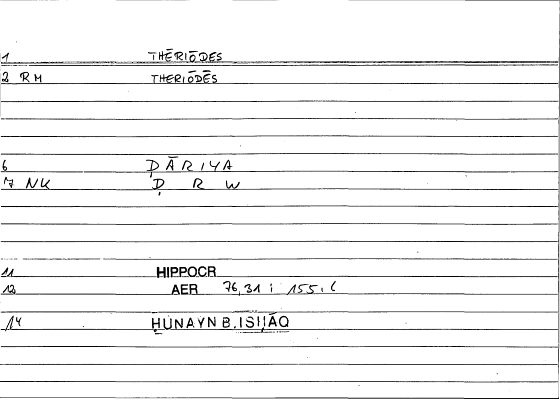 1 THĒRIŌDES
2 RM THERIŌDĒS
6 ḌĀRIYA
7 NK Ḍ R W
11 HIPPOCR
12 AER 76,31 i 155.6
14 ḤUNAYN B. ISḤĀQ